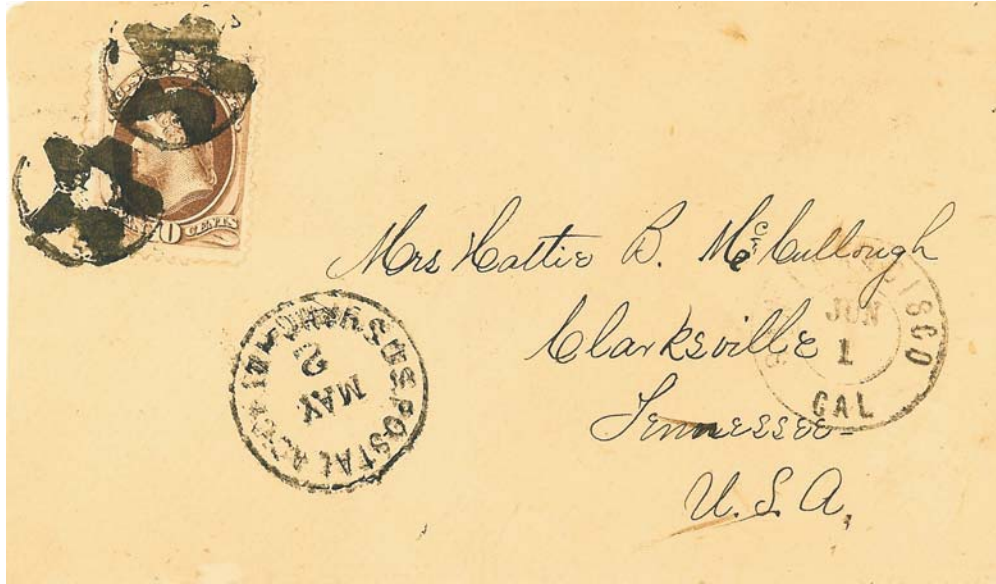 CENTS
Mrs Hattie B. McCullough
Clarksville
Tennessee
U.S.A.
U.S. POSTAL AGCY
MAY
2
SAN FRANCISCO
JUN
1
CAL